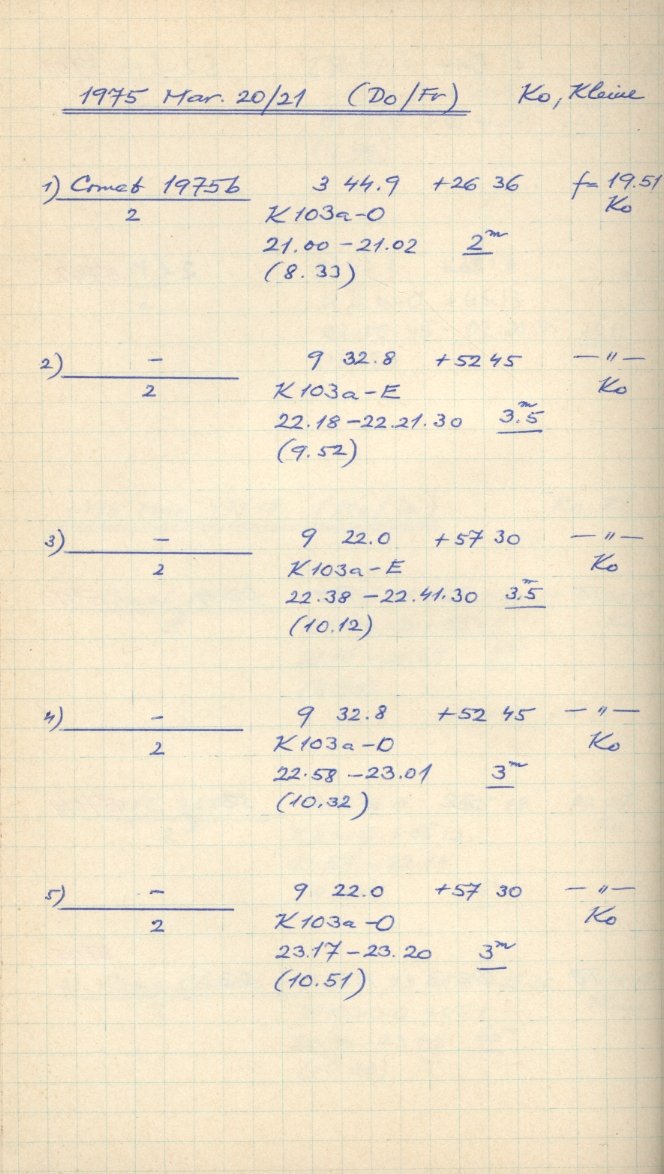 1975 Mar. 20/21 (Do/Fr) Ko, Kleine
1) Comet 1975b 3 44.9 +26 36 f= 19.51
2 K103a-O Ko
21.00-21.02 2m
(8.33)
2) - 9 32.8 +52 45 —"—
2 K103a-E Ko
22.18-22.21.30 3.5m
(9.52)
3) - 9 22.0 +57 30 —"—
2 K103a-E Ko
22.38-22.41.30 3.5m
(10.12)
4) - 9 32.8 +52 45 —"—
2 K103a-O Ko
22.58-23.01 3m
(10.32)
5) - 9 22.0 +57 30 —"—
2 K103a-O Ko
23.17-23.20 3m
(10.51)